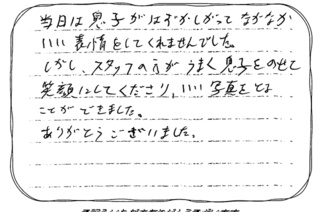 当日は息子がはずかしがってなかなか
いい表情をしてくれませんでした。
しかし、スタッフの方がうまく息子をのせて
笑顔にしてくださり、いい写真をとる
ことができました。
ありがとうございました。